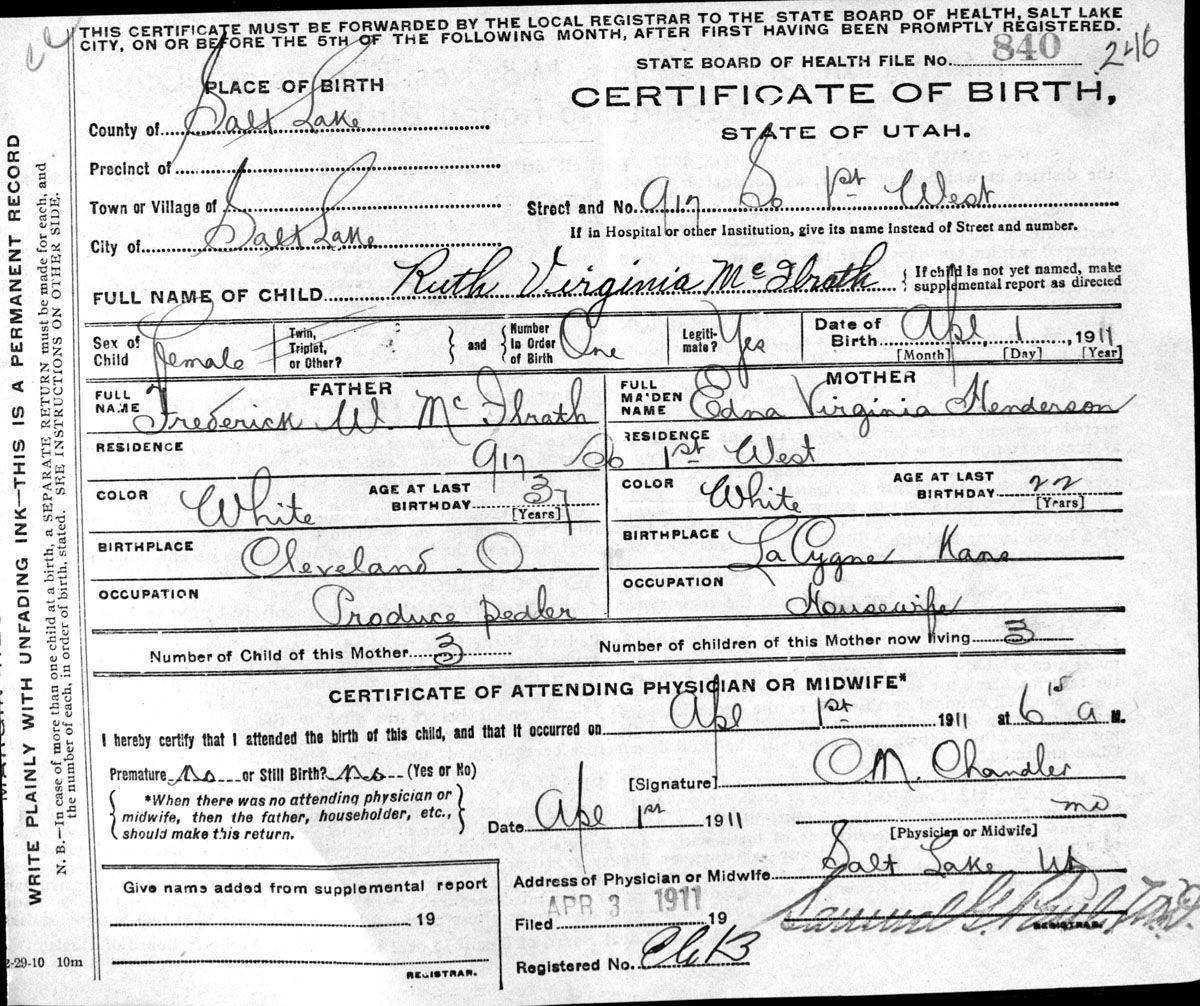 THIS CERTIFICATE MUST BE FORWARDED BY THE LOCAL REGISTRAR TO THE STATE BOARD OF HEALTH, SALT LAKE
CITY, ON OR BEFORE THE 5TH OF THE FOLLOWING MONTH, AFTER FIRST HAVING BEEN PROMPTLY REGISTERED.
STATE BOARD OF HEALTH FILE No. 840 246
PLACE OF BIRTH
CERTIFICATE OF BIRTH,
STATE OF UTAH.
County of Salt Lake
Precinct of
Town or Village of
Street and No. 917 So 1st West
City of Salt Lake
If in Hospital or other Institution, give its name instead of Street and number.
FULL NAME OF CHILD Ruth Virginia McIlrath { If child is not yet named, make supplemental report as directed
Sex of Child Female Twin, Triplet, or Other? } and { Number in Order of Birth One Legitimate? Yes Date of Birth Apl 1, 1911
[Month] [Day] [Year]
FATHER
FULL NAME Frederick W. McIlrath
RESIDENCE 917 So 1st West
COLOR White AGE AT LAST BIRTHDAY 37 [Years]
BIRTHPLACE Cleveland. O.
OCCUPATION Produce Pedler
MOTHER
FULL MAIDEN NAME Edna Virginia Henderson
RESIDENCE
COLOR White AGE AT LAST BIRTHDAY 22 [Years]
BIRTHPLACE LaCygne Kans
OCCUPATION Housewife
Number of Child of this Mother 3 Number of children of this Mother now living 3
CERTIFICATE OF ATTENDING PHYSICIAN OR MIDWIFE*
I hereby certify that I attended the birth of this child, and that it occurred on Apl 1st 1911 at 6 a M.
Premature No or Still Birth? No (Yes or No)
[Signature] O M. Chandler
{ *When there was no attending physician or midwife, then the father, householder, etc., should make this return. }
Date Apl 1st 1911
MD
[Physician or Midwife]
Address of Physician or Midwife Salt Lake Ut
Give name added from supplemental report
19
REGISTRAR.
Filed APR 3 1911 19
REGISTRAR.
Registered No.
2-29-10 10m
WRITE PLAINLY WITH UNFADING INK—THIS IS A PERMANENT RECORD
N. B.—In case of more than one child at a birth, a SEPARATE RETURN must be made for each, and
the number of each, in order of birth, stated. SEE INSTRUCTIONS ON OTHER SIDE.